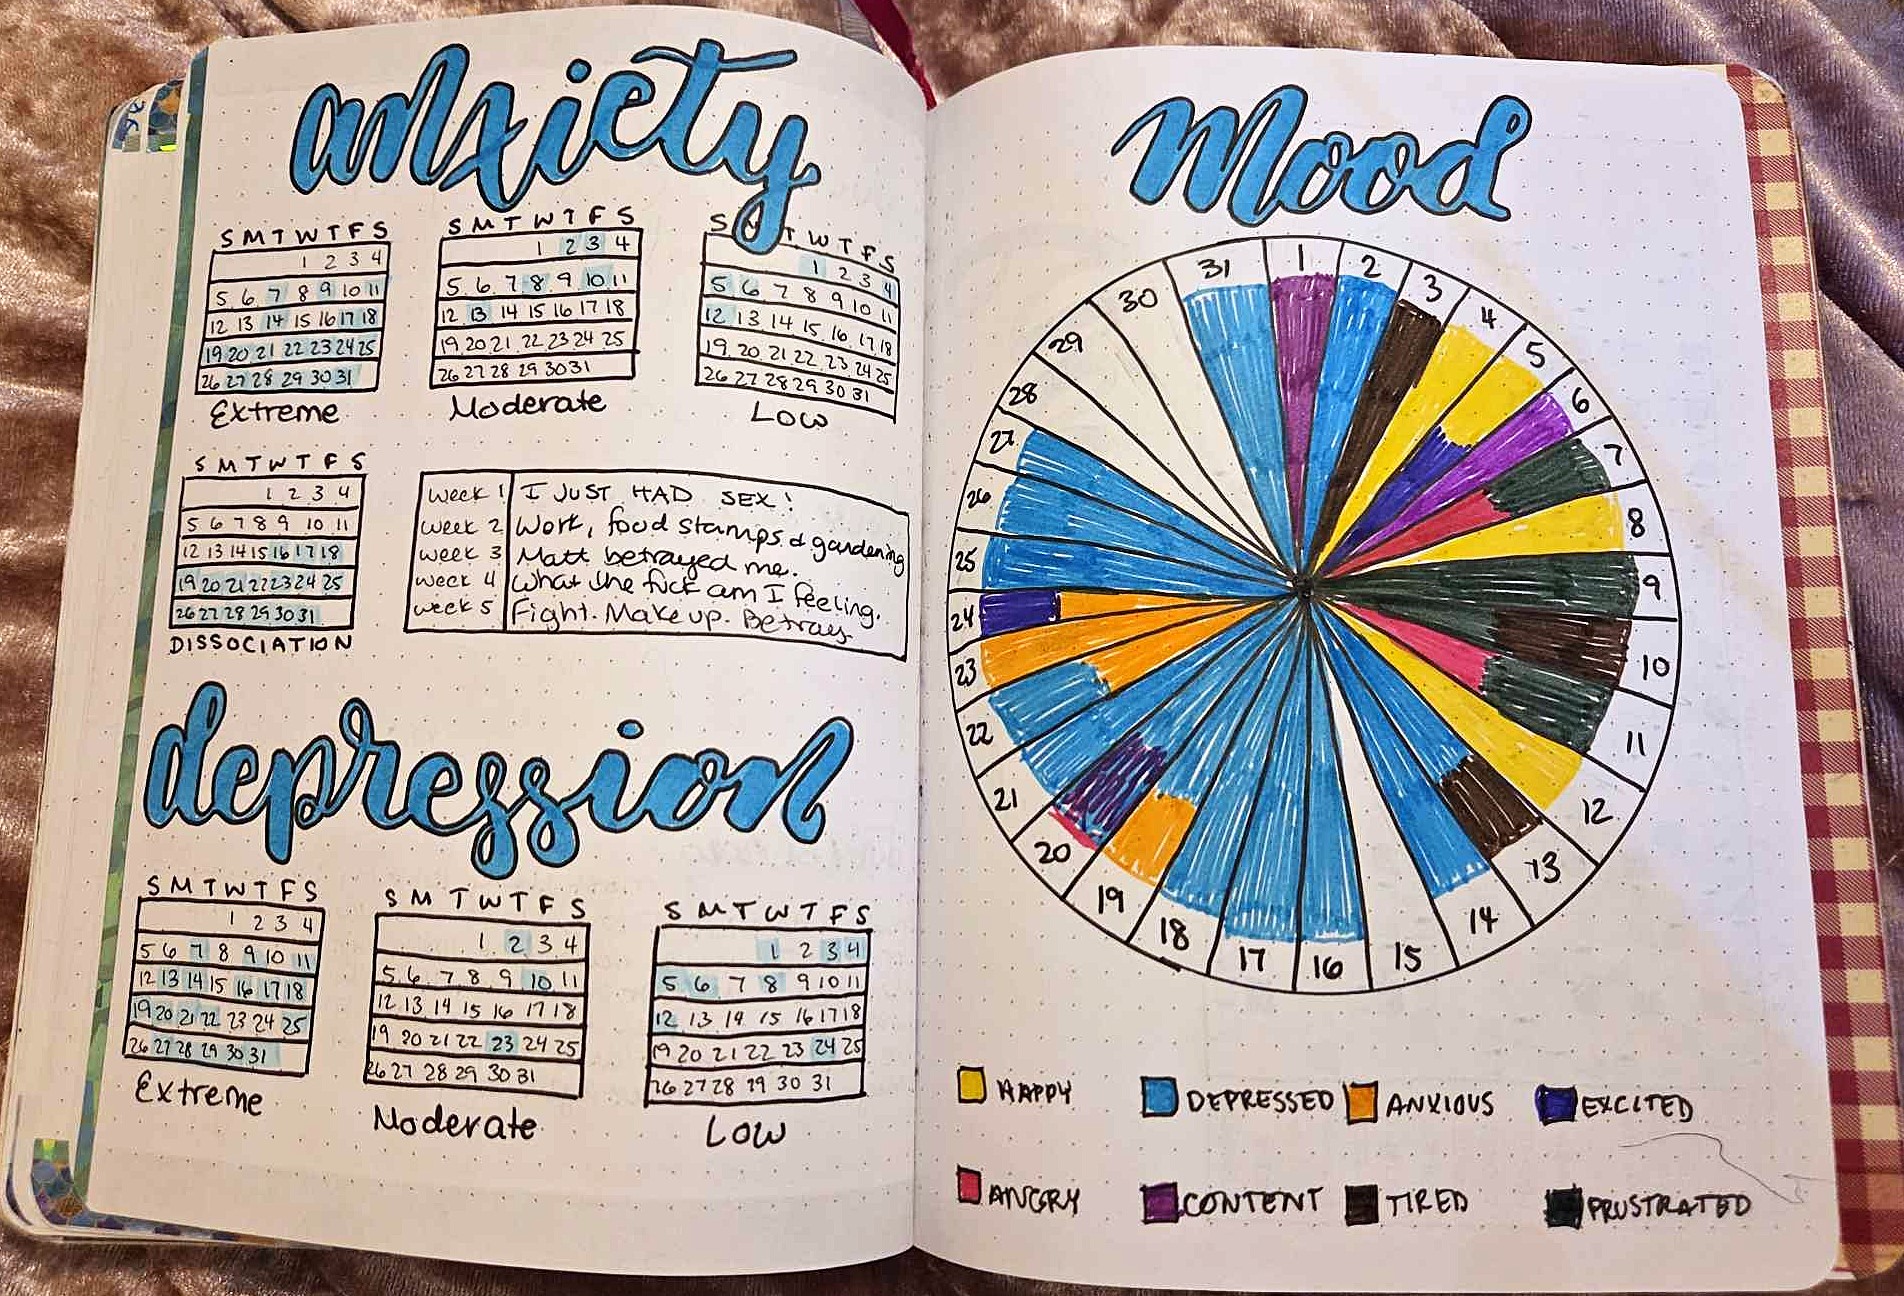 anxiety
S M T W T F S
1 2 3 4
5 6 7 8 9 10 11
12 13 14 15 16 17 18
19 20 21 22 23 24 25
26 27 28 29 30 31
Extreme
S M T W T F S
1 2 3 4
5 6 7 8 9 10 11
12 13 14 15 16 17 18
19 20 21 22 23 24 25
26 27 28 29 30 31
Moderate
S M T W T F S
1 2 3 4
5 6 7 8 9 10 11
12 13 14 15 16 17 18
19 20 21 22 23 24 25
26 27 28 29 30 31
Low
S M T W T F S
1 2 3 4
5 6 7 8 9 10 11
12 13 14 15 16 17 18
19 20 21 22 23 24 25
26 27 28 29 30 31
DISSOCIATION
Week 1 I JUST HAD SEX!
Week 2 Work, food stamps & gardening
Week 3 Matt betrayed me.
Week 4 What the fuck am I feeling.
Week 5 Fight. Make up. Betray.
depression
S M T W T F S
1 2 3 4
5 6 7 8 9 10 11
12 13 14 15 16 17 18
19 20 21 22 23 24 25
26 27 28 29 30 31
Extreme
S M T W T F S
1 2 3 4
5 6 7 8 9 10 11
12 13 14 15 16 17 18
19 20 21 22 23 24 25
26 27 28 29 30 31
Moderate
S M T W T F S
1 2 3 4
5 6 7 8 9 10 11
12 13 14 15 16 17 18
19 20 21 22 23 24 25
26 27 28 29 30 31
Low
Mood
1
2
3
4
5
6
7
8
9
10
11
12
13
14
15
16
17
18
19
20
21
22
23
24
25
26
27
28
29
30
31
HAPPY
DEPRESSED
ANXIOUS
EXCITED
ANGRY
CONTENT
TIRED
FRUSTRATED